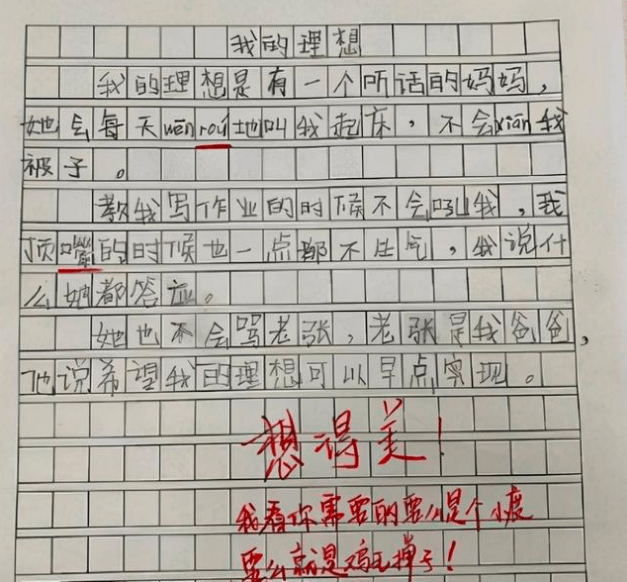 我的理想
我的理想是有一个听话的妈妈，
她会每天wēnróu地叫我起床，不会xiān我
被子。
教我写作业的时候不会吼我，我
顶嘴的时候也一点都不生气，我说什
么她都答应。
她也不会骂老张，老张是我爸爸，
他说希望我的理想可以早点实现。
想得美！
我看你需要的要么是个小度
要么就是鸡毛掸子！